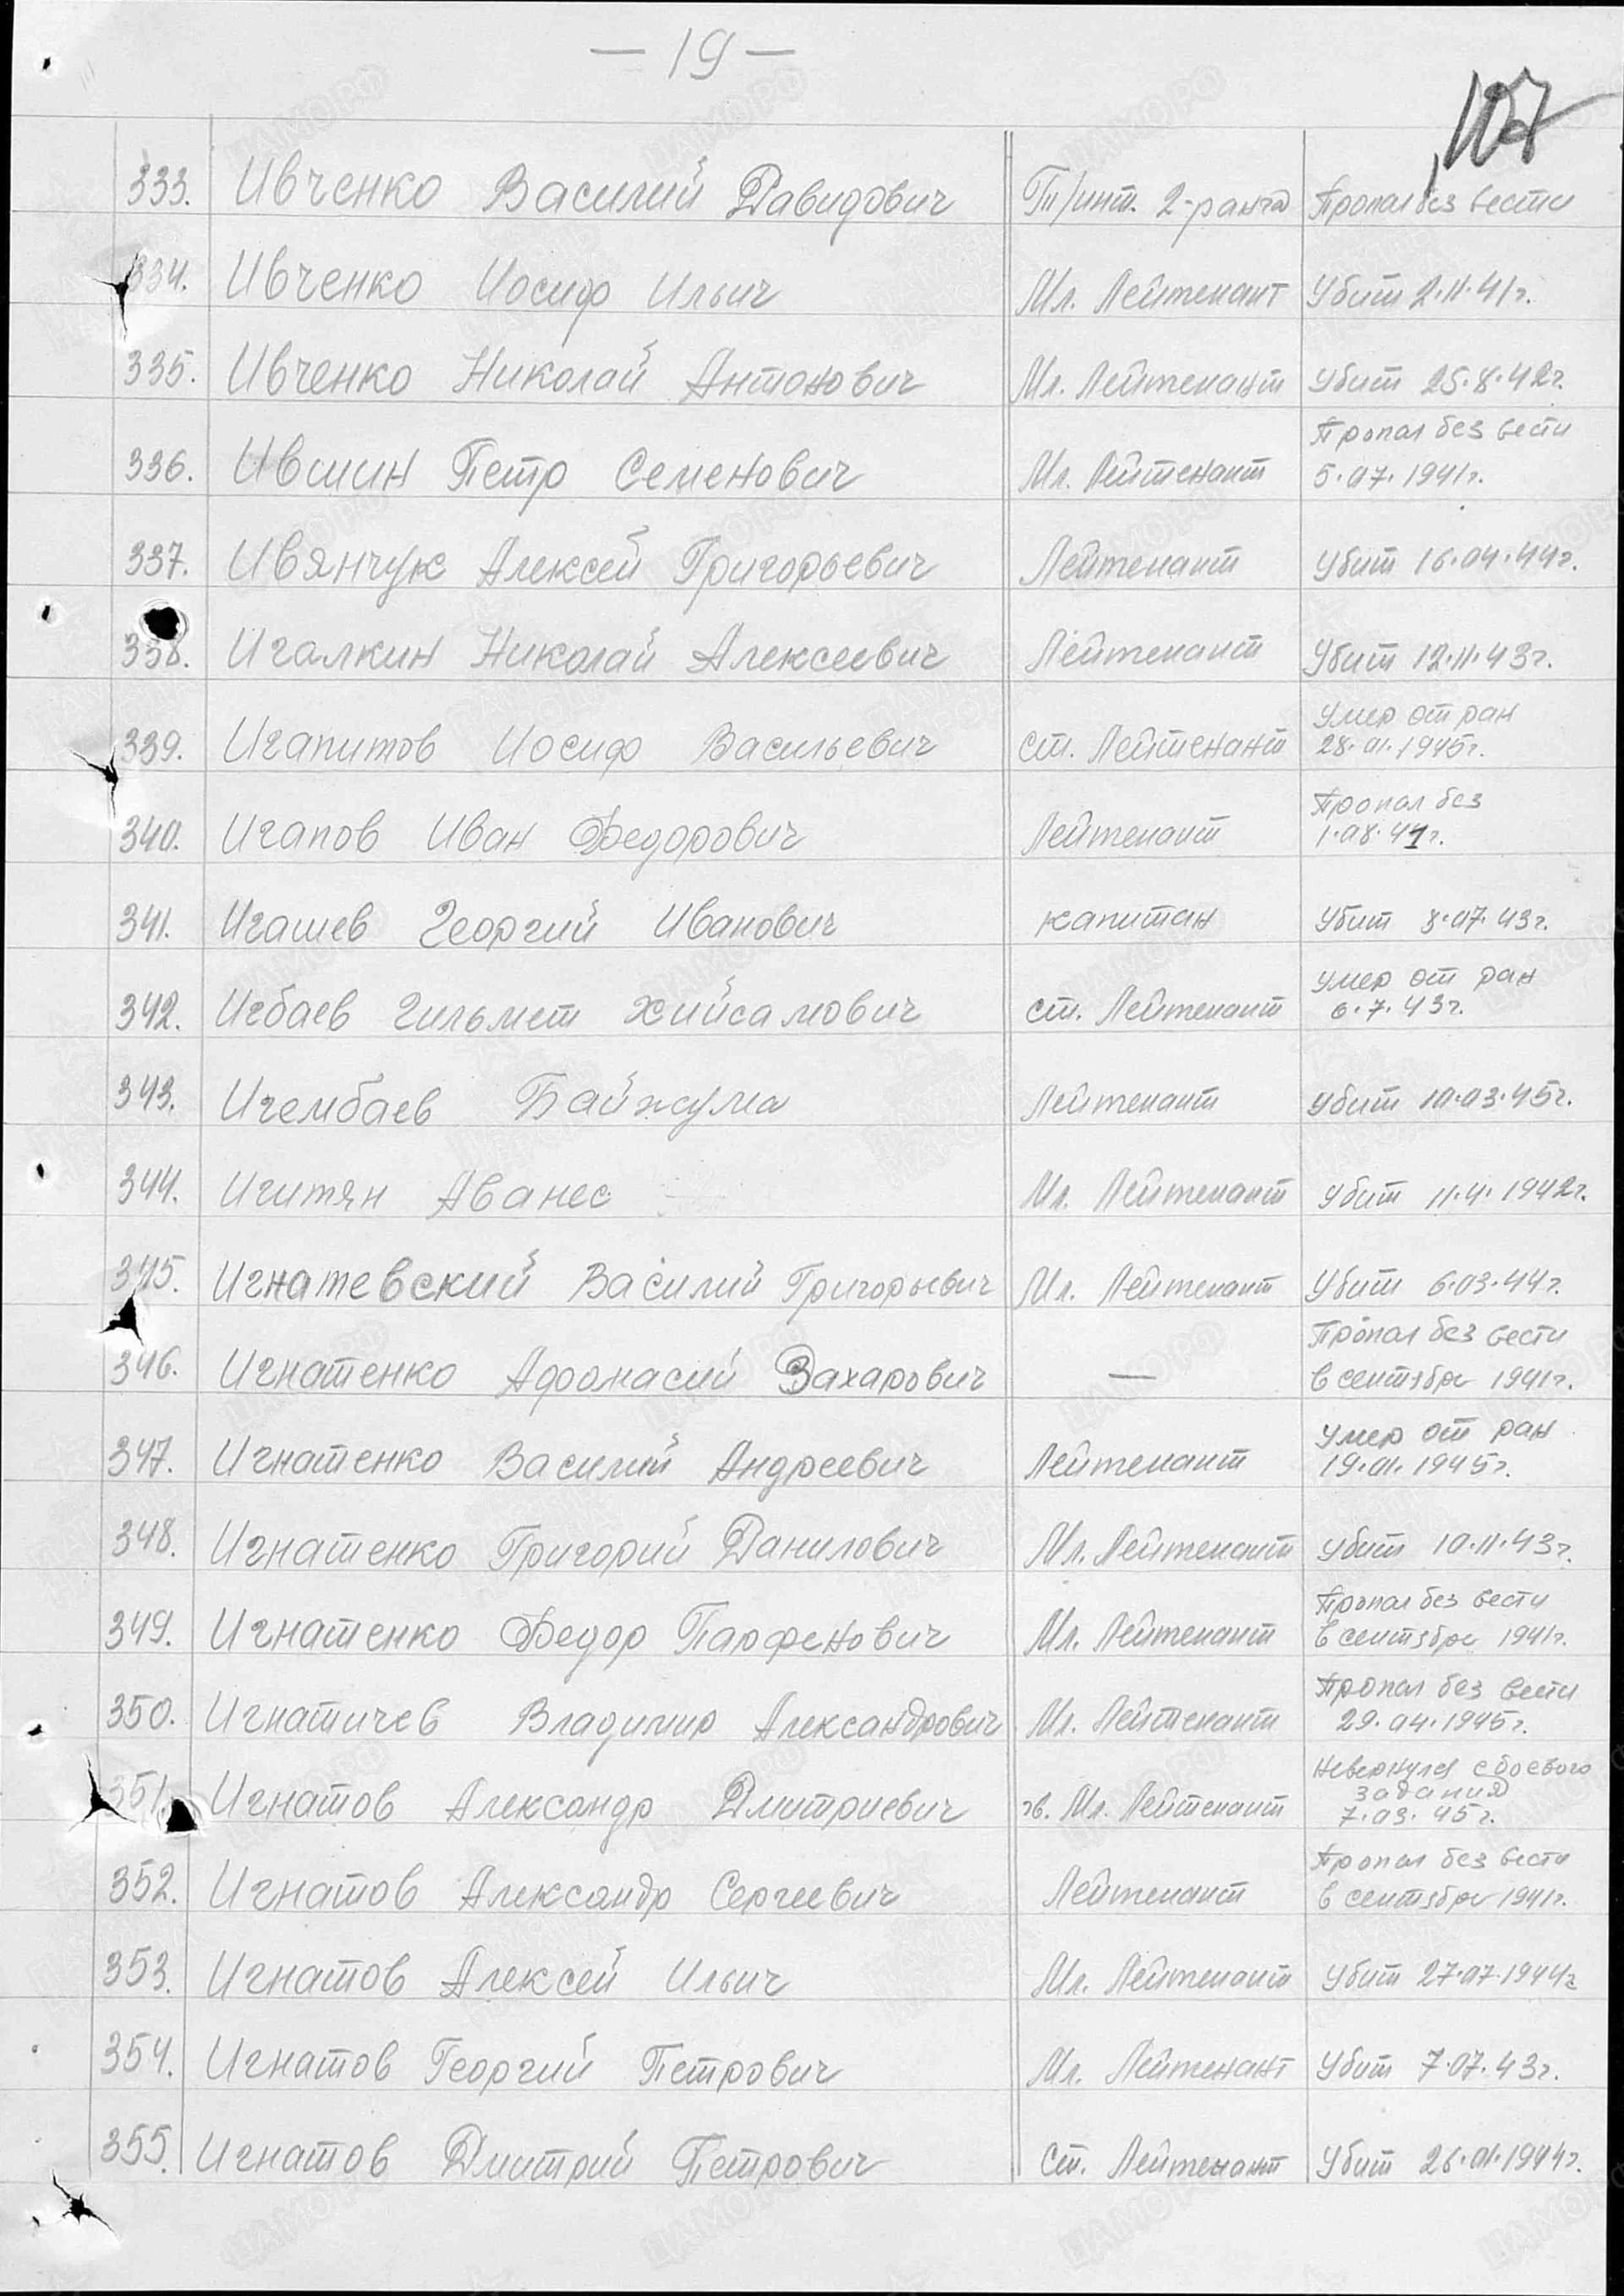 — 19 —
107
333. Ивченко Василий Давидович Т/инт. 2-ранга Пропал без вести
334. Ивченко Иосиф Ильич Мл. Лейтенант Убит 2.11.41г.
335. Ивченко Николай Антонович Мл. Лейтенант Убит 25.8.42г.
336. Ившин Петр Семенович Мл. Лейтенант Пропал без вести
5.07.1941г.
337. Ивянчук Алексей Григорьевич Лейтенант Убит 16.04.44г.
338. Игалкин Николай Алексеевич Лейтенант Убит 12.11.43г.
339. Игапитов Иосиф Васильевич ст. Лейтенант Умер от ран
28.01.1945г.
340. Игапов Иван Федорович Лейтенант Пропал без
1.08.41г.
341. Игашев Георгий Иванович капитан Убит 8.07.43г.
342. Игбаев Гильмет Хийсамович ст. Лейтенант Умер от ран
6.7.43г.
343. Игембаев Байжума Лейтенант Убит 10.03.45г.
344. Игитян Аванес Мл. Лейтенант Убит 11.4.1942г.
345. Игнатевский Василий Григорьевич Мл. Лейтенант Убит 6.03.44г.
346. Игнатенко Афонасий Захарович — Пропал без вести
в сентябре 1941г.
347. Игнатенко Василий Андреевич Лейтенант Умер от ран
19.01.1945г.
348. Игнатенко Григорий Данилович Мл. Лейтенант Убит 10.11.43г.
349. Игнатенко Федор Парфенович Мл. Лейтенант Пропал без вести
в сентябре 1941г.
350. Игнатичев Владимир Александрович Мл. Лейтенант Пропал без вести
29.04.1945г.
351. Игнатов Александр Дмитриевич гв. Мл. Лейтенант Невернулся с боевого
задания
7.03.45г.
352. Игнатов Александр Сергеевич Лейтенант Пропал без вести
в сентябре 1941г.
353. Игнатов Алексей Ильич Мл. Лейтенант Убит 27.07.1944г
354. Игнатов Георгий Петрович Мл. Лейтенант Убит 7.07.43г.
355. Игнатов Дмитрий Петрович Ст. Лейтенант Убит 26.01.1944г.